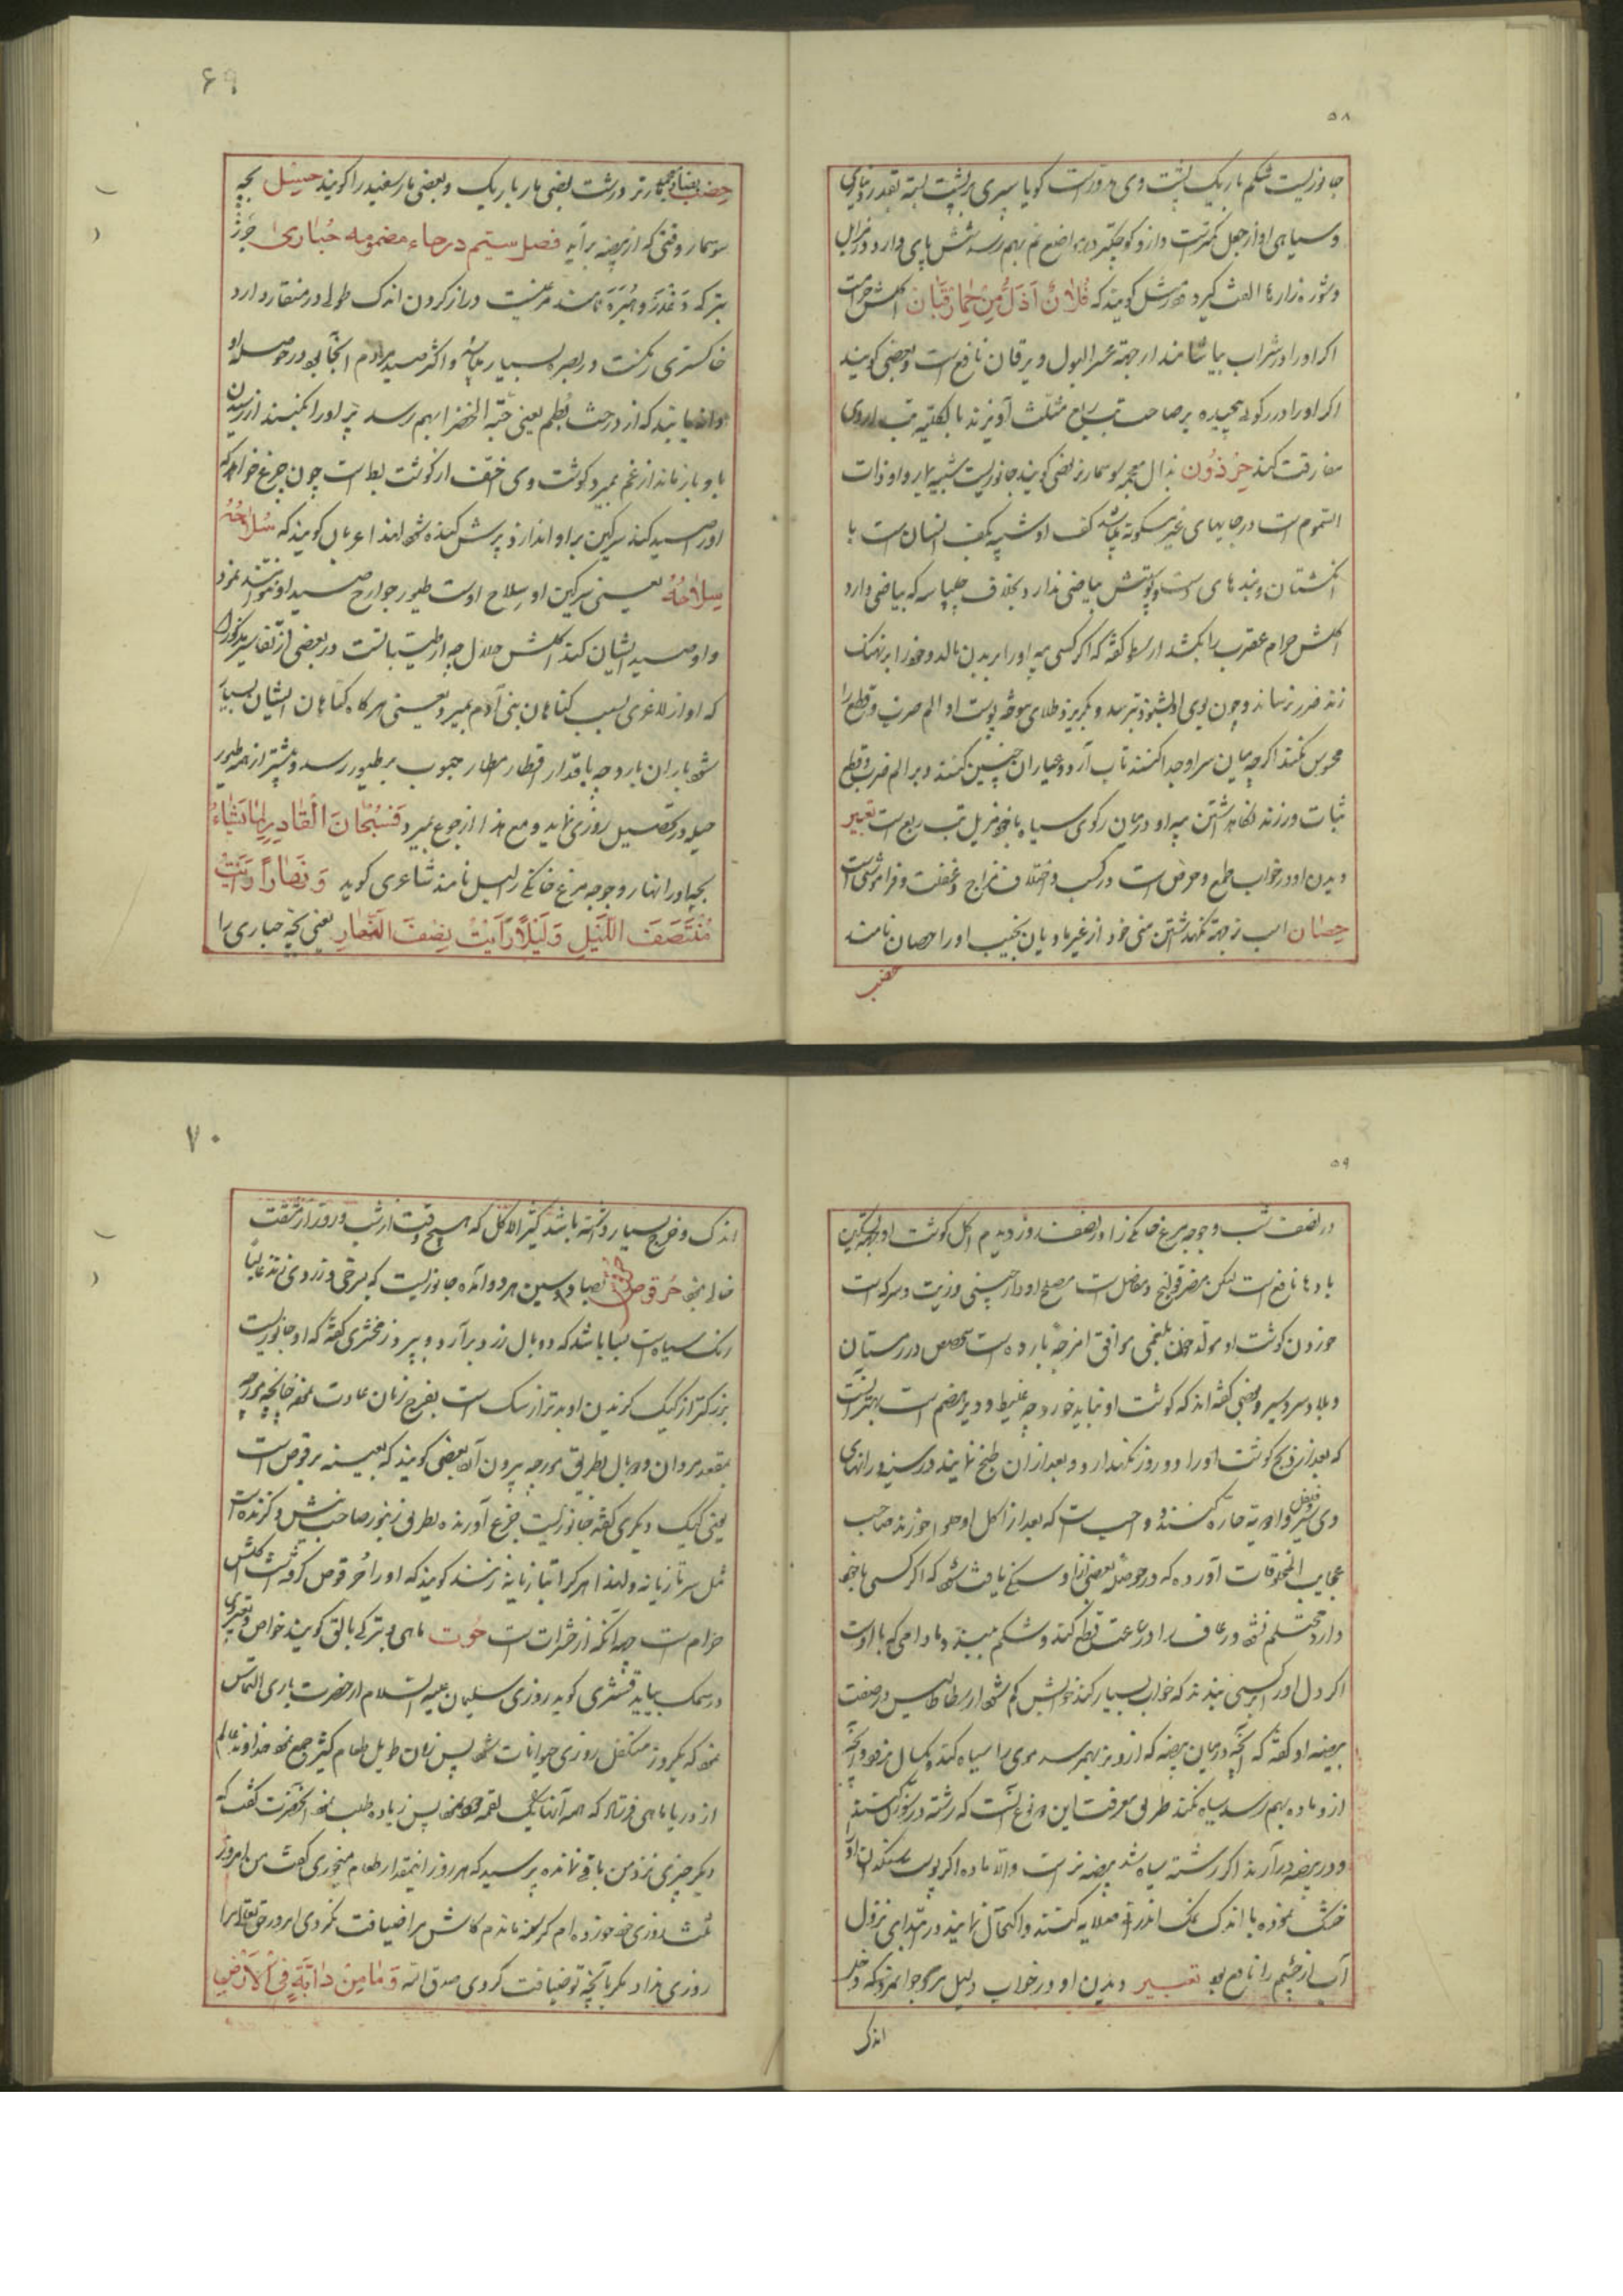 ۵۸
جانوریست شکم باریک پشت وی مدورست کویا سپری بر پشت بسته بقدر دیناری
و سیاهی او از جعل کمترست و ازو کوچکتر در مواضع نم بهم رسد شش پای دارد و در مزابل
و شوره زارها الفت کیرد عرب مثل کویند که فُلانٌ اَذَلُّ مِنْ حِمارِ قَبّانَ اکلش حرامست
اکر او را در شراب بیاشامند از جهة عسر البول و یرقان نافع است و بعضی کویند
اکر او را در رکوئی پیچیده بر صاحب تب مثلث آویزند بالکلیه تب از وی
مفارقت کند حِرْذَوْن بذال معجمه سوسمار نر بعضی کویند جانوریست شبیه باو و او ذات
السموم است در جایهای غیر مسکونه باشد کف او شبیه بکف انسان است با
انکشتان و بندهای دست و پوستش بیاضی ندارد بخلاف چلپاسه که بیاضی دارد
اکلش حرام عقرب را بکشد ارسطو کفته که اکر کسی پیه او را بر بدن مالد و خود را بر نهنک
زند ضرر نرساند و چون بوی او بشنود بترسد و بکریزد طلای سوخته پوست او الم ضرب و قطع را
محسوس نکند اکرچه میان سر او جدا کنند تاب آرد و عیاران چنین کنند و بر الم ضرب و قطع
ثبات ورزند نکاهداشتن پیه او در میان رکوی سیاه با خود مزیل تب ربع است تعبیر
دیدن او در خواب طمع و حرص است در کسب و اختلاف مزاج و غفلت و فراموشی است
حِصٰان اسب نر جهة نکهداشتن منی خود از غیر مادیان نجیب او را حصان نامند
حضب
۶۹
حِضب بضاد معجمه مار نر درشت بعضی مار باریک و بعضی مار سفید را کویند حِسْل بچه
سوسمار وقتی که از بیضه برآید فصل سیتم در حاء مضمومه حُبٰاریٰ چرز
بترکی دَغْدَرْ و هُبَرَه نامند مرغیست دراز کردن اندک طولی در منقار دارد
خاکستری رنکست در بصره بسیار باشد و اکثر صید مردم آنجا بود در حوصله او
دانه یابند که از درخت بُطم یعنی حبّة الخضرا بهم رسد پر او را بکنند از رسیدن
باو باز ماند از غم بمیرد کوشت وی اخف از کوشت بط است چون چرغ خواهد که
او را صید کند سرکین بر او اندازد پرش کنده شود لهذا اعراب کویند که سُلاٰحُهُ
سِلاٰحُهُ یعنی سرکین او سلاح اوست طیور جوارح صید او نتوانند نمود
و او صید ایشان کند اکلش حلال چه از طیبات است در بعضی از تفاسیر مذکور است
که او از لاغری بسبب کناهان بنی آدم بمیرد یعنی هرکاه کناهان ایشان بسیار
شود باران بارد چه باقتدار اقطار امطار حبوب بر طیور رسد و بیشتر از همه طیور
حیله در تحصیل روزی نماید و مع هذا از جوع بمیرد فَسُبْحٰانَ الْقٰادِرِ لِمٰا یَشٰاءُ
بچه او را نهار و جوجه مرغ خانکی را لیل نامند شاعری کوید وَ نَهٰاراً رَاَیْتُ
مُنْتَصَفَ اللَّیْلِ وَ لَیْلاً رَاَیْتُ نِصْفَ النَّهٰارِ یعنی بچه حباری را
۵۹
در نصف شب و جوجه مرغ خانکی را در نصف روز دیدم اکل کوشت او بجهة تسکین
بادها نافع است لیکن مضر قولنج و مفاصل است مصلح او دارچینی و زیت و سرکه است
خوردن کوشت او مولد خون بلغمی موافق امزجه بارده است مخصوص در زمستان
و بلاد سردسیر و بعضی کفته اند که کوشت او نباید خورد چه غلیظ و دیر هضم است بهتر آنست
که بعد از ذبح کوشت او را دو روز نکهدارد و بعد از آن طبخ نمایند در سینه و رانهای
وی سیر و فلفل و ادویه حاره کنند و واجب است که بعد از اکل او حلوا خورند صاحب
عجایب المخلوقات آورده که در حوصله بعضی از او سنکی یافت شود که اکر کسی با خود
دارد محتلم نشود و رعاف را در ساعت قطع کند و شکم ببندد مادامی که با اوست
اکر دل او را بر کسی بندند که خواب بسیار کند خوابش کم شود ارسطاطالیس در صفت
بیضه او کفته که آنچه در میان بیضه که از و نر بهم رسد موی را سیاه کند و یکسال بماند و آنچه
از و ماده بهم رسد سیاه نکند طریق معرفت این دو نوع آنست که رشته در سوزن کنند
و در بیضه درآرند اکر رشته سیاه شد بیضه نر است والا ماده اکر پوست سنکدان او را
خشک نموده با اندک نمک اندرانی صلایه کنند و اکتحال نمایند در ابتدای نزول
آب از چشم را نافع بود تعبیر دیدن او در خواب دلیل بر جوانمردی که دخل
اندک
۷۰
اندک و خرج بسیار داشته باشد کثیر الاکل که هیچ وقت از شب و روز از مشقت
خالی نبود حُرقوص بصاد و سین هر دو آمده جانوریست که بسرخی و زردی زند غالبا
رنک سیاه است بسا باشد که دو بال زرد برآرد و بپرد زمخشری کفته که او جانوریست
بزرکتر از کیک کزیدن او بدتر از سک است بفرج زنان عادت نموده چنانچه مورچه
بمقعد مردان و دو بال بطریق مورچه بیرون آرد بعضی کویند که بعینه برغوث است
یعنی کیک دیکری کفته جانوریست جزع آورنده بطریق زنبور صاحب نیش و کزنده است
مثل سر تازیانه و لهذا هر کرا بتازیانه زنند کویند که او را حُرقوص کرفته است اکلش
حرام است چه آنکه از حشرات است حُوت ماهی و بترکی بالق کویند خواص و تعبیر وی
در سمک بیاید قشیری کوید روزی سلیمان علیه السلام از حضرت باری التماس
نمود که یکروز متکفل روزی حیوانات شود پس زمان طویل طعام کثیر جمع نمود خداوند عالم
از دریا ماهی فرستاد که همه آنها یک لقمه نمود پس زیاده طلب نمود آنحضرت کفت که
دیکر چیزی نزد من باقی نمانده پرسید که هر روز اینمقدار طعام میخوری کفت من امروز
ثلث روزی خود خورده ام کرسنه ماندم کاش مرا ضیافت نکردی امروز حق تعالی مرا
روزی نداد مکر بآنچه تو ضیافت کردی صدق الله وَ مٰا مِنْ دٰابَّةٍ فِی الْاَرْضِ